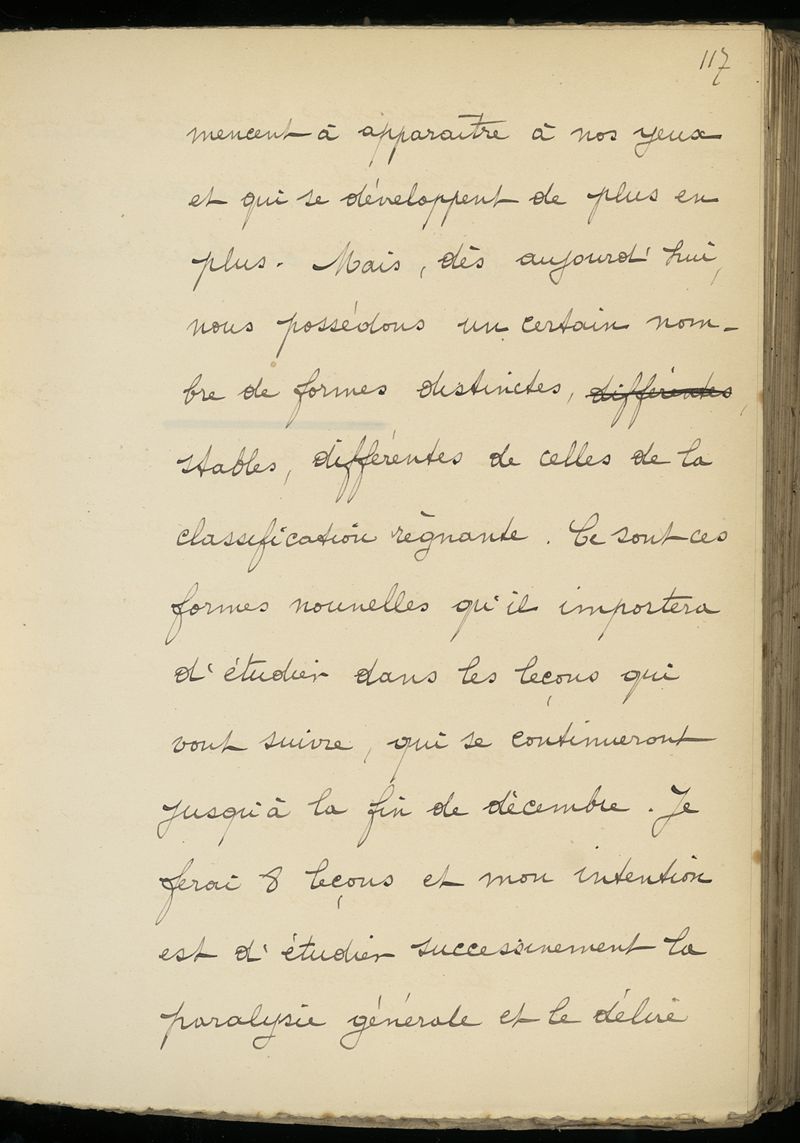 117
mencent à apparaître à nos yeux
et qui se développent de plus en
plus. Mais, dès aujourd'hui,
nous possédons un certain nom-
bre de formes distinctes, différentes,
stables, différentes de celles de la
classification règnante. Ce sont ces
formes nouvelles qu'il importera
d'étudier dans les leçons qui
vont suivre, qui se continueront
jusqu'à la fin de décembre. Je
ferai 8 leçons et mon intention
est d'étudier successivement la
paralysie générale et le délire